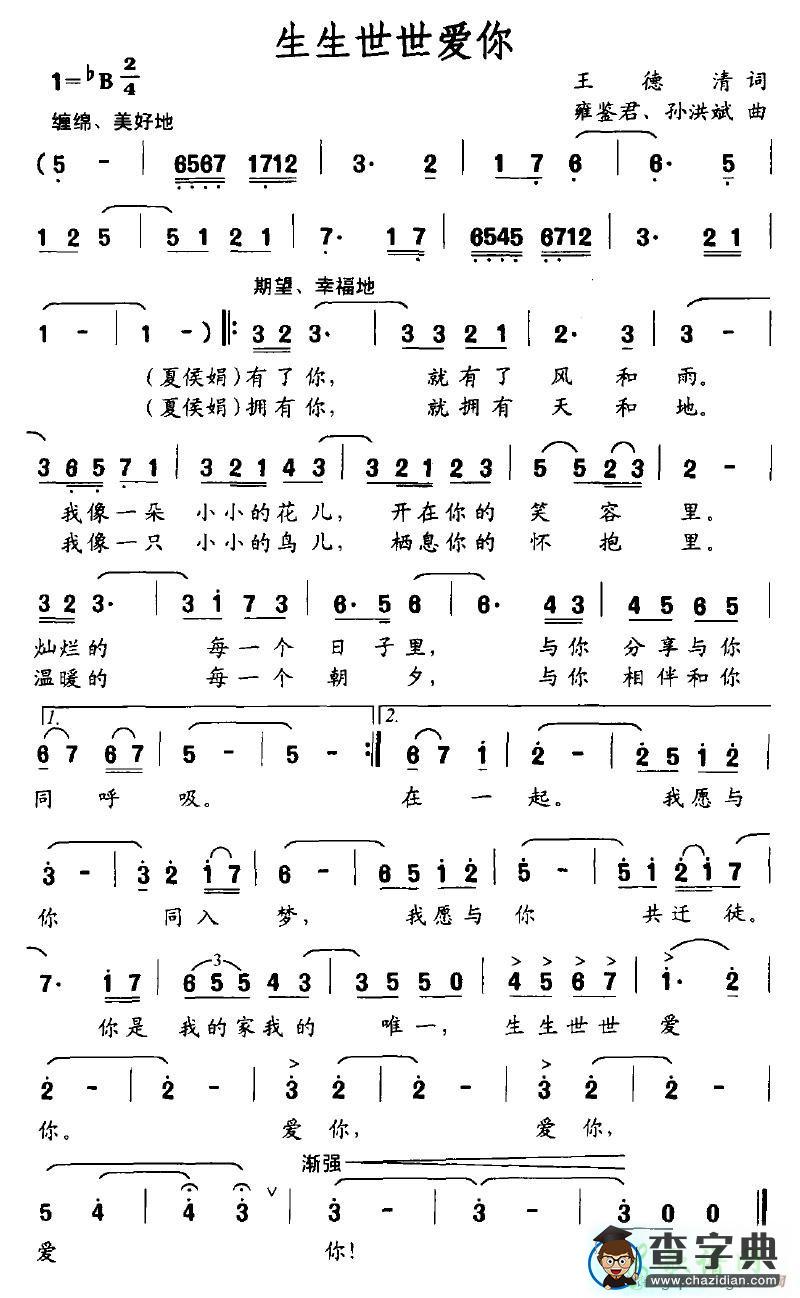 生生世世爱你
1=♭B 2/4
王 德 清 词
缠绵、美好地
雍鉴君、孙洪斌 曲
(5 - | 6567 1712 | 3· 2 | 1 7 6 | 6· 5 |
1 2 5 | 5 1 2 1 | 7· 1 7 | 6545 6712 | 3· 2 1 |
期望、幸福地
1 - | 1 - ) ‖: 3 2 3· | 3 3 2 1 | 2· 3 | 3 - |
(夏侯娟)有了你, 就有了 风 和 雨。
(夏侯娟)拥有你, 就拥有 天 和 地。
3 6 5 7 1 | 3 2 1 4 3 | 3 2 1 2 3 | 5 5 2 3 | 2 - |
我像一朵 小小的花儿, 开在你的 笑 容 里。
我像一只 小小的鸟儿, 栖息你的 怀 抱 里。
3 2 3· | 3 1 7 3 | 6· 5 6 | 6· 4 3 | 4 5 6 5 |
灿烂的 每一个 日 子里, 与你 分享与你
温暖的 每一个 朝 夕, 与你 相伴和你
1. 2.
6 7 6 7 | 5 - | 5 - :‖ 6 7 1 | 2 - | 2 5 1 2 |
同 呼 吸。 在 一 起。 我愿与
3 - | 3 2 1 7 | 6 - | 6 5 1 2 | 5 - | 5 1 2 1 7 |
你 同入 梦, 我愿与 你 共迁 徒。
7· 1 7 | 3 6 5 5 4 3 | 3 5 5 0 | 4 5 6 7 | 1· 2 |
你是 我的家我的 唯一, 生生世世 爱
2 - | 2 - | 3 2 | 2 - | 3 2 | 2 - |
你。 爱 你, 爱 你,
渐强
5 4 | 4 3 ∨ | 3 - | 3 - | 3 0 0 ‖
爱 你!
查字典
www.chazidian.com